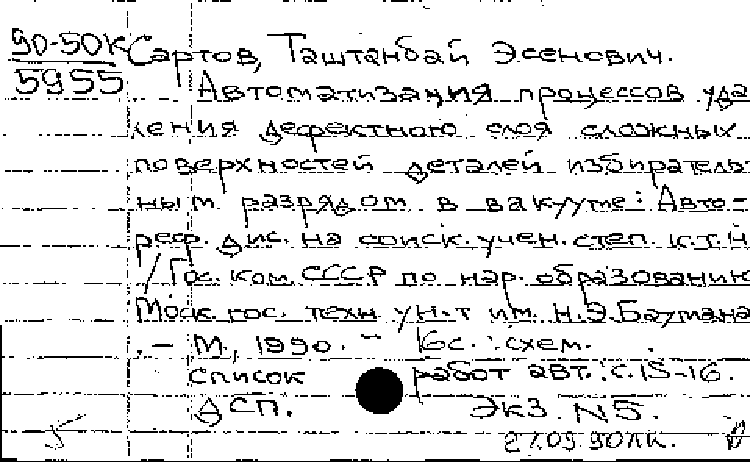 90-50К Сартов, Таштанбай Эсенович.
5955 Автоматизация процессов уда
ления дефектного слоя сложных
поверхностей деталей избиратель
ным разрядом в вакууме: Авто-
реф. дис. на соиск. учен. степ. к.т.н
/ Гос. ком. СССР по нар. образованию
Моск. гос. техн. ун-т им. Н.Э. Баумана
. - М., 1990. - 16с. : схем.
Список работ авт.: с. 15-16.
ДСП. Экз. N5.
27.09.90 лк.